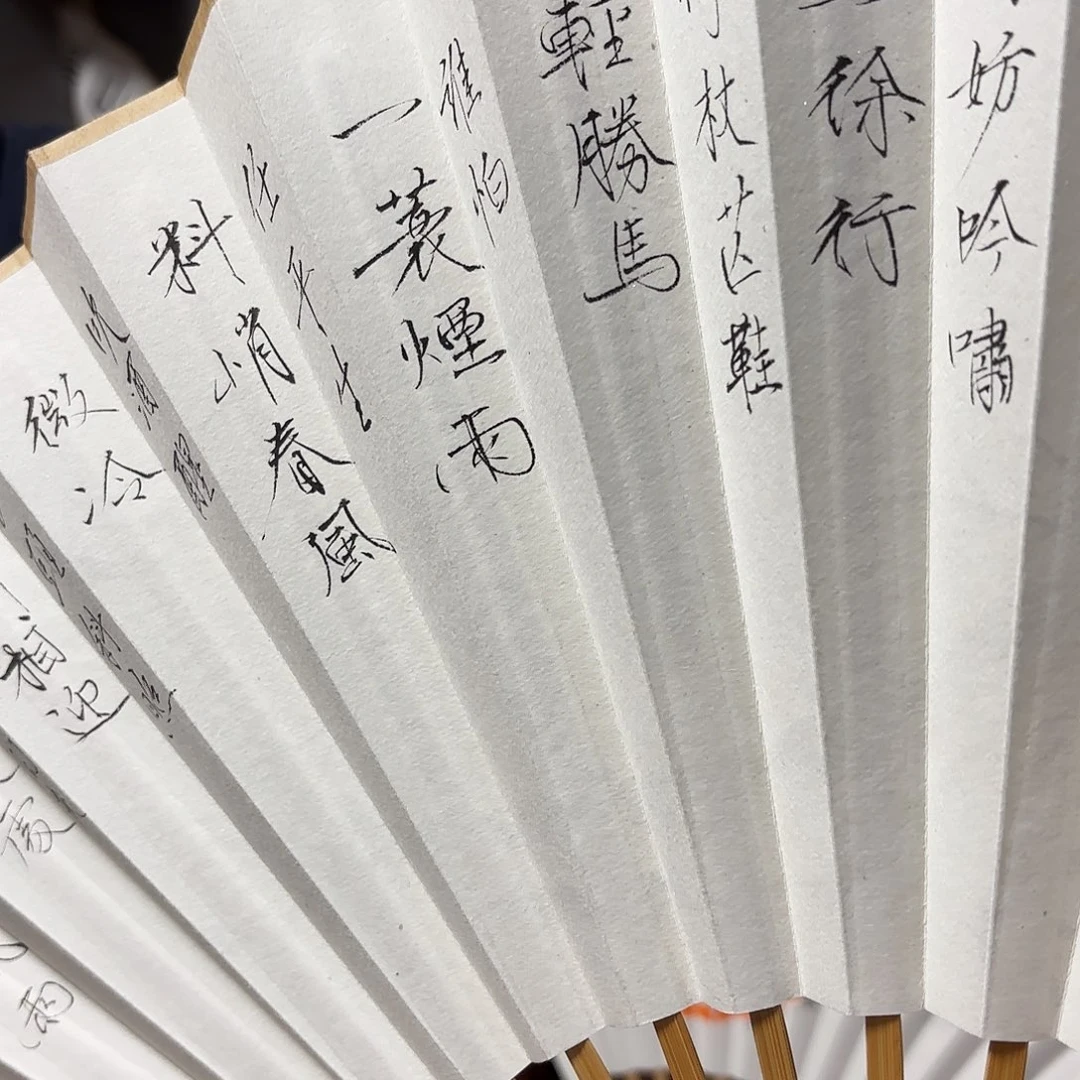 妨吟嘯
徐行
竹杖芒鞋
輕勝馬
誰怕
一蓑煙雨
任平生
料峭春風
吹酒醒
微冷
頭斜照
相迎
處
雨